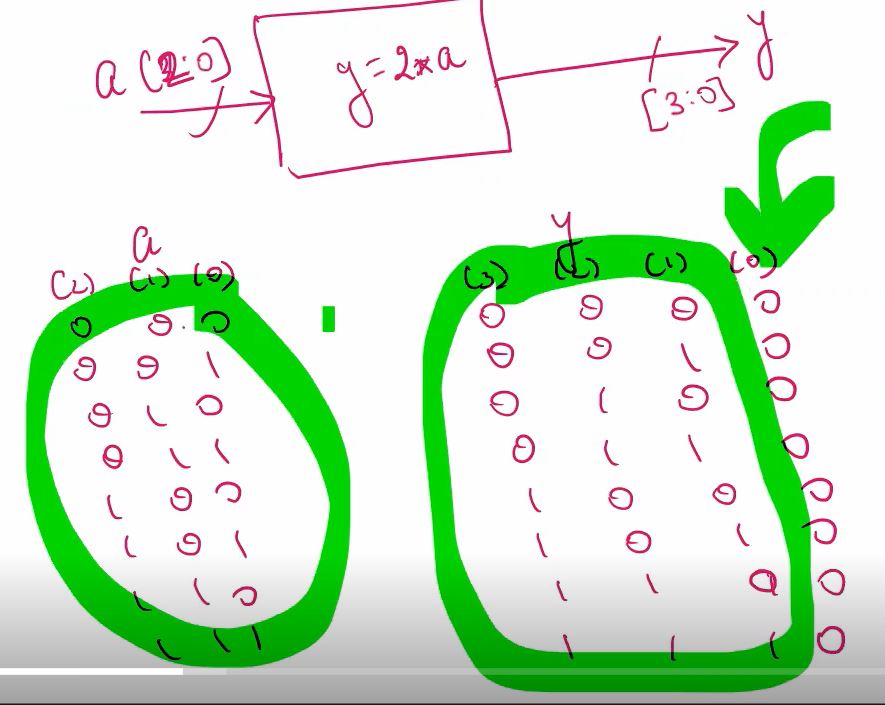 a [2:0]
y = 2*a
y
[3:0]
a
(2) (1) (0)
0 0 0
0 0 1
0 1 0
0 1 1
1 0 0
1 0 1
1 1 0
1 1 1
y
(3) (2) (1) (0)
0 0 0 0
0 0 1 0
0 1 0 0
0 1 1 0
1 0 0 0
1 0 1 0
1 1 0 0
1 1 1 0